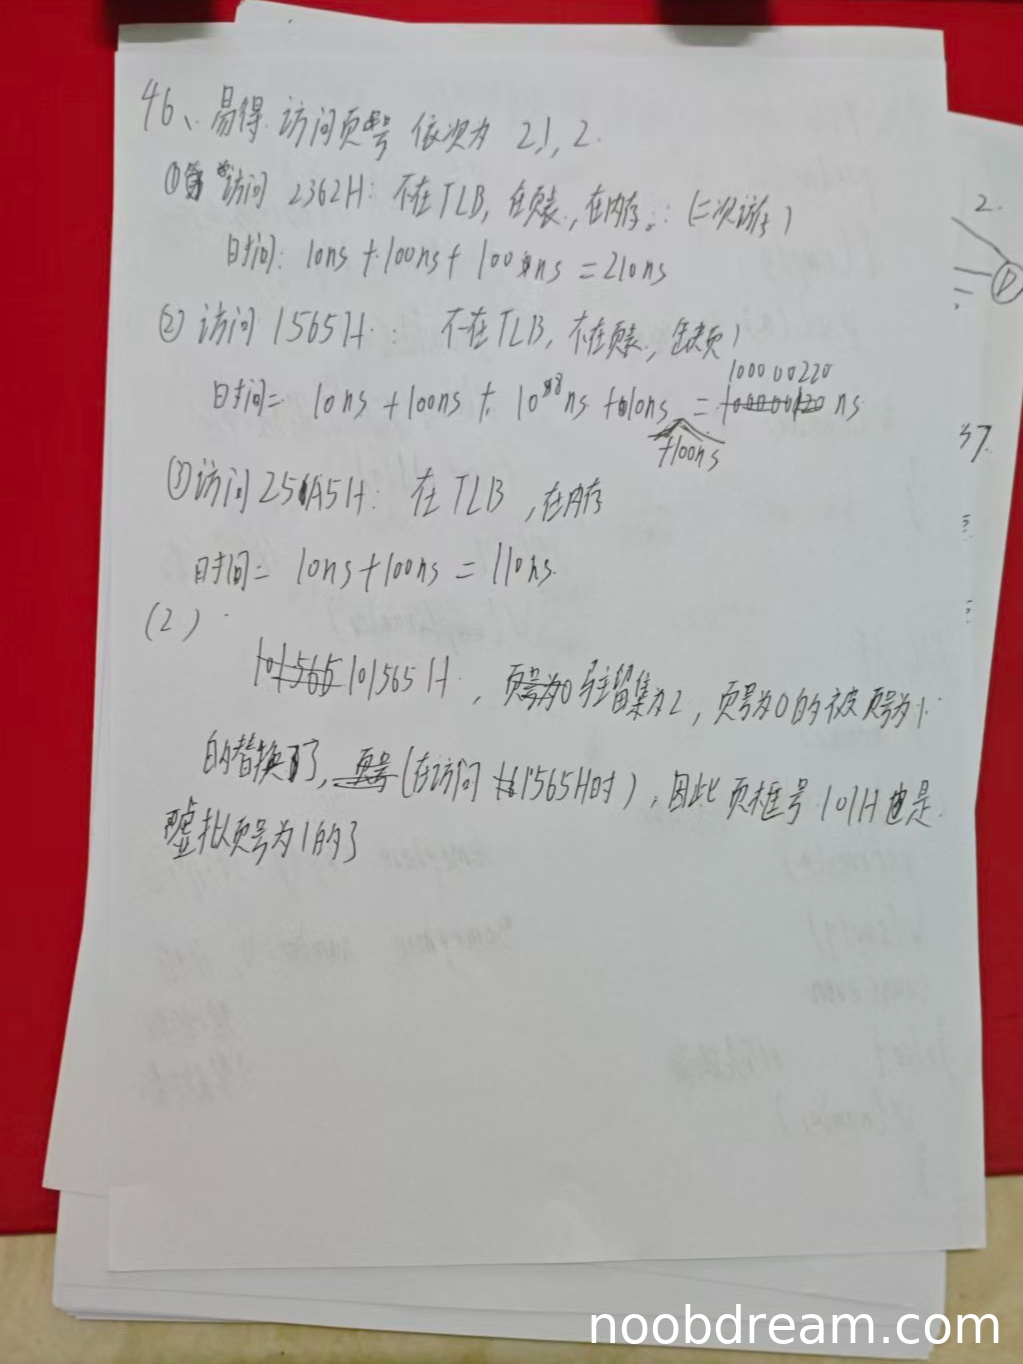 46、易得 访问页号 依次为 2,1,2.
① 访问 2362H: 不在TLB, 在页表, 在内存。: (二次访存)
时间: 10ns + 100ns + 100ns = 210ns
② 访问 1565H: 不在TLB, 不在页表, 缺页)
100000220
时间= 10ns + 100ns + 10^8ns + 10ns = 100000120 ns
+100ns
③ 访问 25A5H: 在TLB, 在内存
时间= 10ns + 100ns = 110ns.
(2)
101565 101565H, 页号为0 驻留集为2, 页号为0的被页号为1
的替换了, 页号 (在访问 1565H时), 因此 页框号 101H 也是
虚拟页号为1的了
2.
37.
noobdream.com